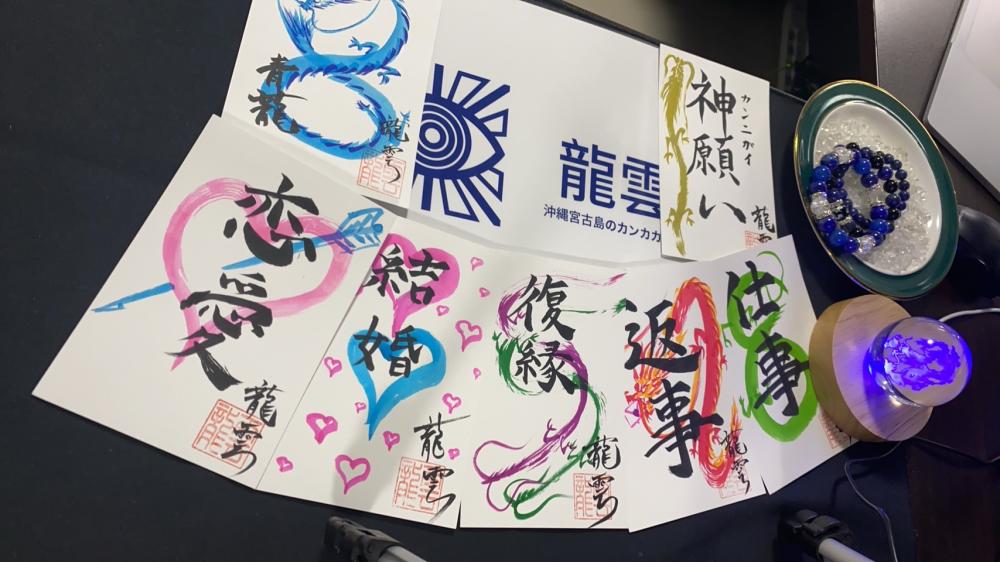 青龍
龍雲
龍雲
沖縄宮古島のカンカカ
神願い
カンニガイ
龍雲
恋愛
龍雲
結婚
龍雲
復縁
龍雲
返事
龍雲
仕事